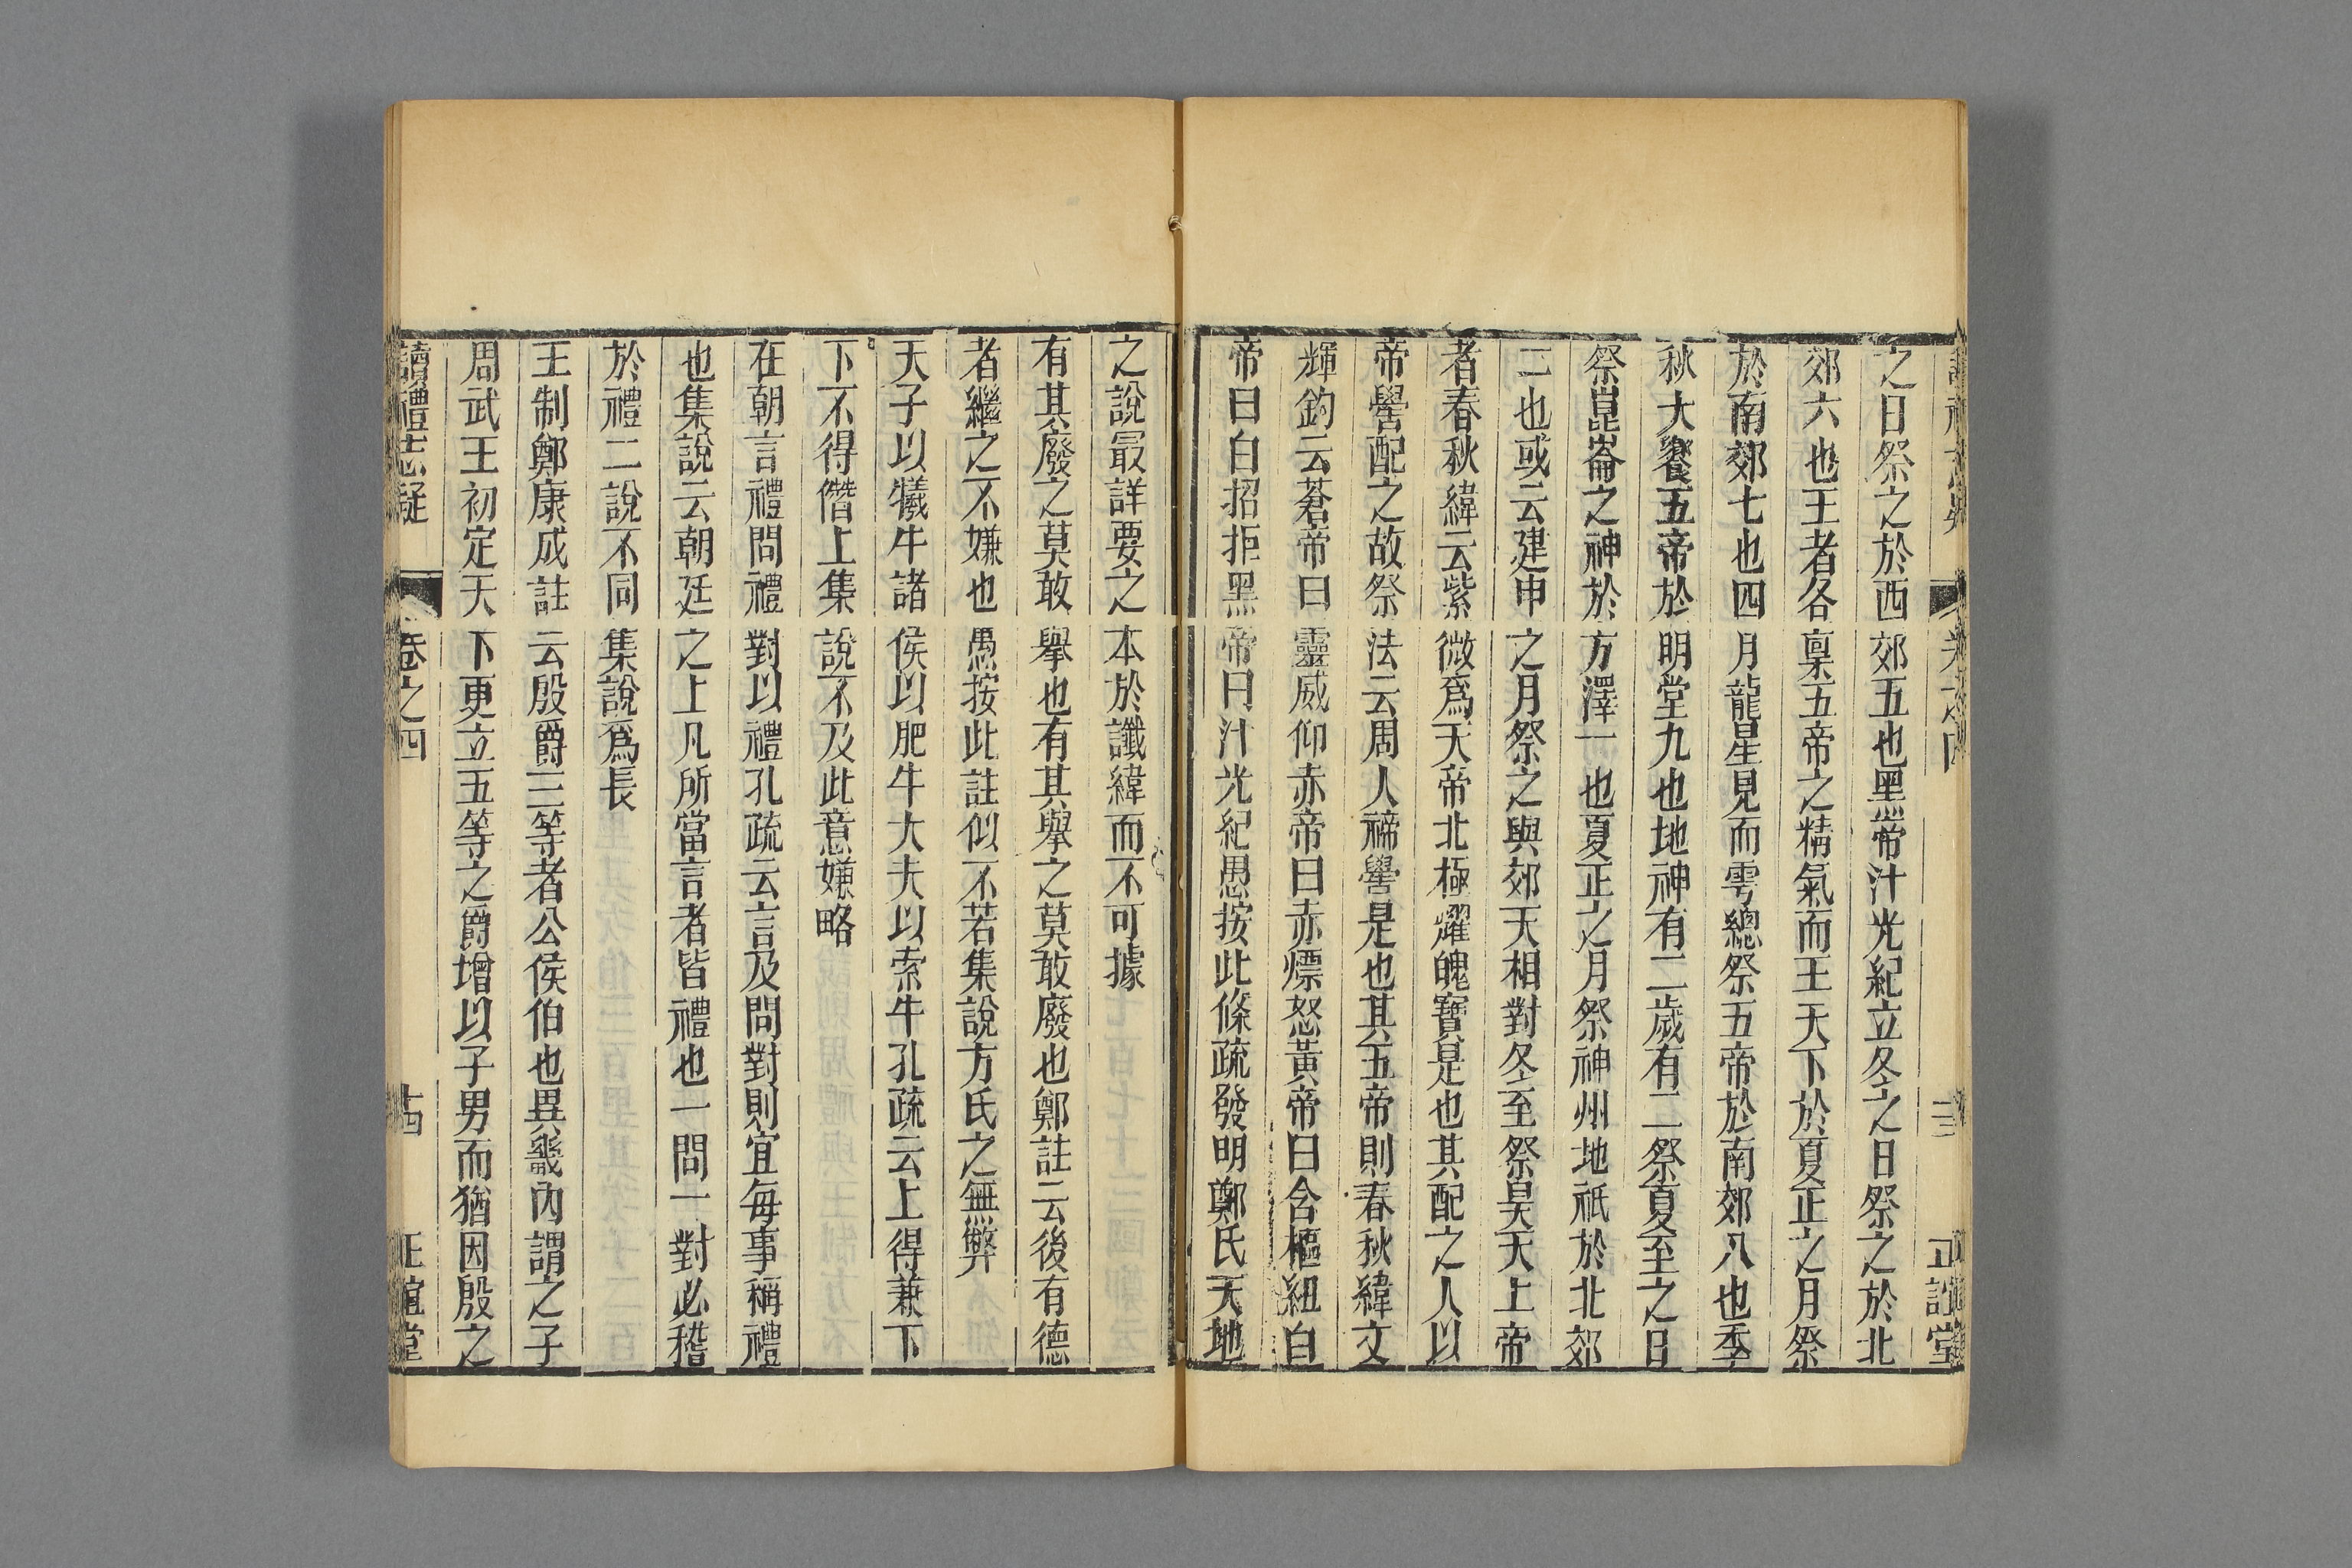 之日祭之於西郊五也黑帝汁光紀立冬之日祭之於北
郊六也王者各稟五帝之精氣而王天下於夏正之月祭
於南郊七也四月龍星見而雩總祭五帝於南郊八也季
秋大饗五帝於明堂九也地神有二歲有二祭夏至之日
祭崑崙之神於方澤一也夏正之月祭神州地祇於北郊
二也或云建申之月祭之與郊天相對冬至祭昊天上帝
者春秋緯云紫微爲天帝北極耀魄寶是也其配之人以
帝嚳配之故祭法云周人禘嚳是也其五帝則春秋緯文
耀鈞云蒼帝曰靈威仰赤帝曰赤熛怒黃帝曰含樞紐白
帝曰白招拒黑帝曰汁光紀愚按此條疏發明鄭氏天地
之說冣詳要之本於讖緯而不可據
有其廢之莫敢舉也有其舉之莫敢廢也鄭註云後有德
者繼之不嫌也愚按此註似不若集說方氏之無弊
天子以犧牛諸侯以肥牛大夫以索牛孔疏云上得兼下
下不得僭上集說不及此意嫌略
在朝言禮問禮對以禮孔疏云言及問對則宜每事稱禮
也集說云朝廷之上凡所當言者皆禮也一問一對必稽
於禮二說不同集說爲長
王制鄭康成註云殷爵三等者公侯伯也異畿內謂之子
周武王初定天下更立五等之爵增以子男而猶因殷之
讀禮志疑 卷之四 十四 正誼堂